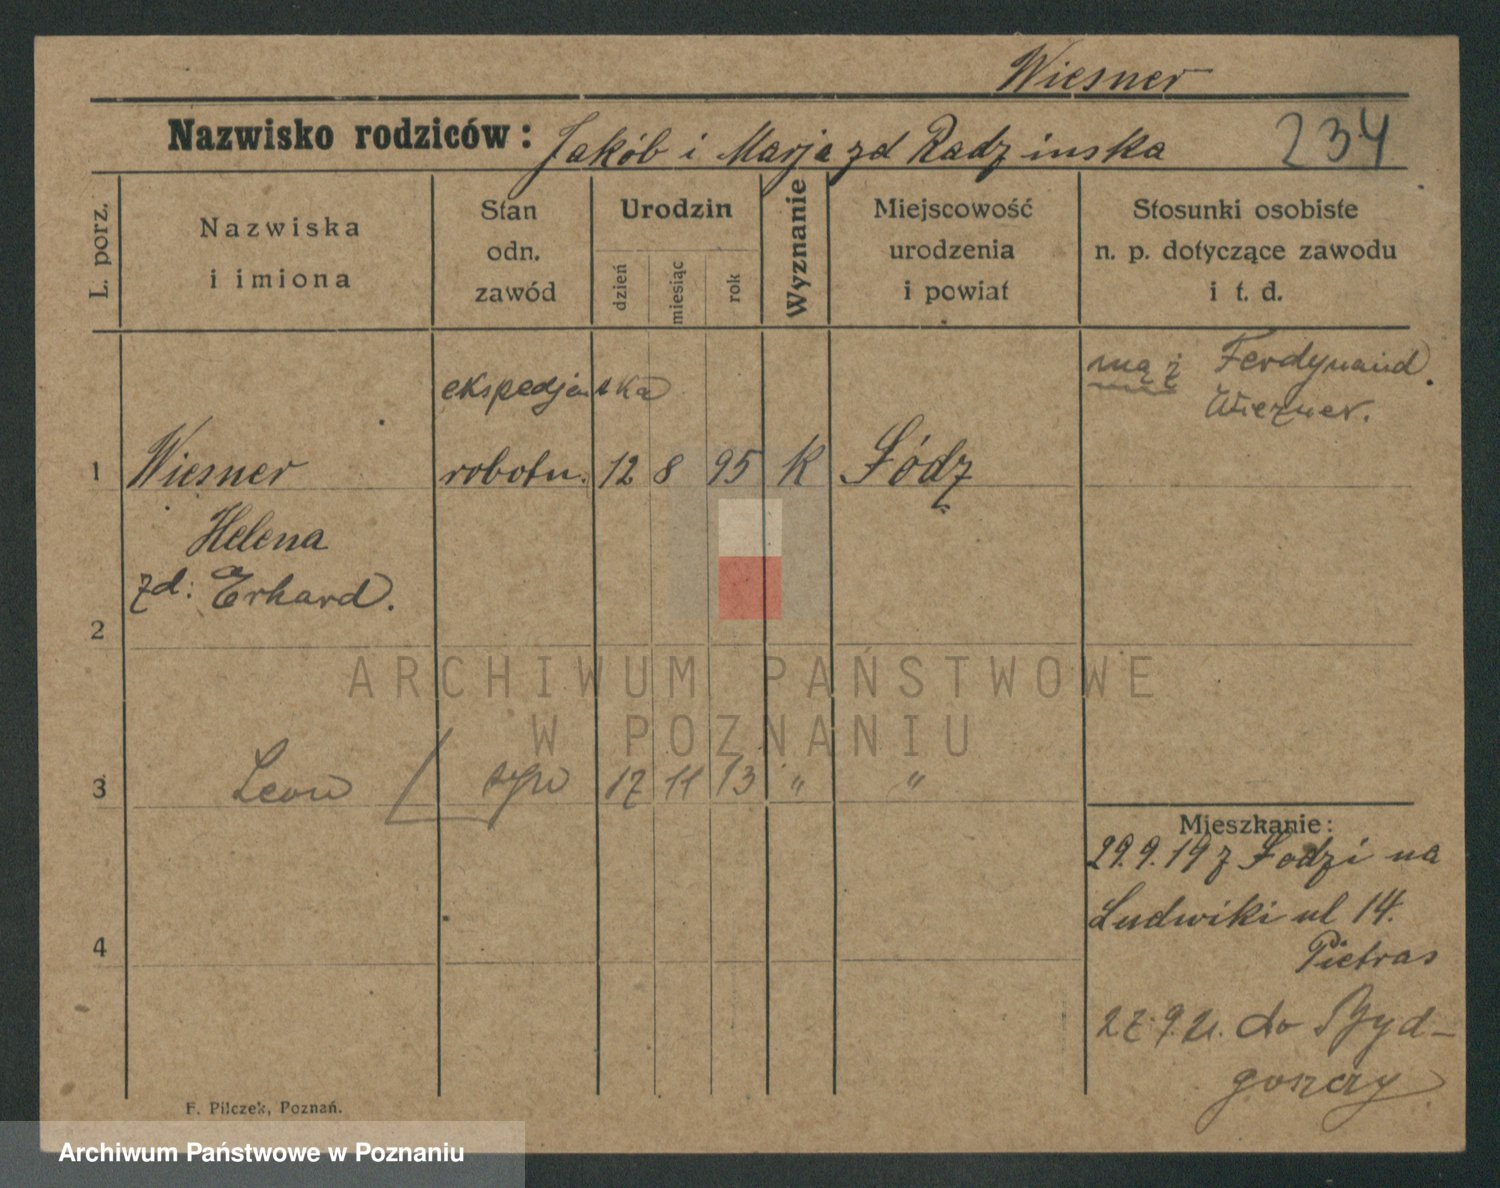 Wiesner
Nazwisko rodziców: Jakób i Marja zd Radzinska 234
L. porz.
Nazwiska
i imiona
Stan
odn.
zawód
Urodzin
dzień
miesiąc
rok
Wyznanie
Miejscowość
urodzenia
i powiat
Stosunki osobiste
n. p. dotyczące zawodu
i t. d.
mąż Ferdynand
Wiezner.
ekspedjentka
1 Wiesner robotn. 12 8 95 K Łódz
Helena
zd: Erhard.
2
3 Leon syn 17 11 13 " "
Mieszkanie:
29.9.19 z Łodzi na
Ludwiki ul 14.
Pietras
4
27.9.21. do Byd-
goszczy
F. Pilczek, Poznań.
ARCHIWUM PAŃSTWOWE
W POZNANIU
Archiwum Państwowe w Poznaniu